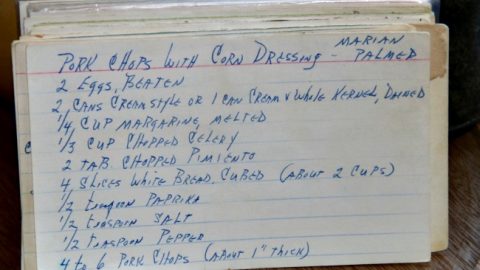 PORK CHOPS WITH CORN DRESSING - MARIAN PALMED
2 EGGS, BEATEN
2 CANS CREAMSTYLE OR 1 CAN CREAM & WHOLE KERNEL, DAINED
1/4 CUP MARGARINE, MELTED
1/3 CUP CHOPPED CELERY
2 TAB. CHOPPED PIMIENTO
4 SLICES WHITE BREAD, CUBED (ABOUT 2 CUPS)
1/2 teaspoon PAPRIKA
1/2 teaspoon SALT
1/2 teaspoon PEPPER
4 to 6 PORK CHOPS (ABOUT 1" THICK)